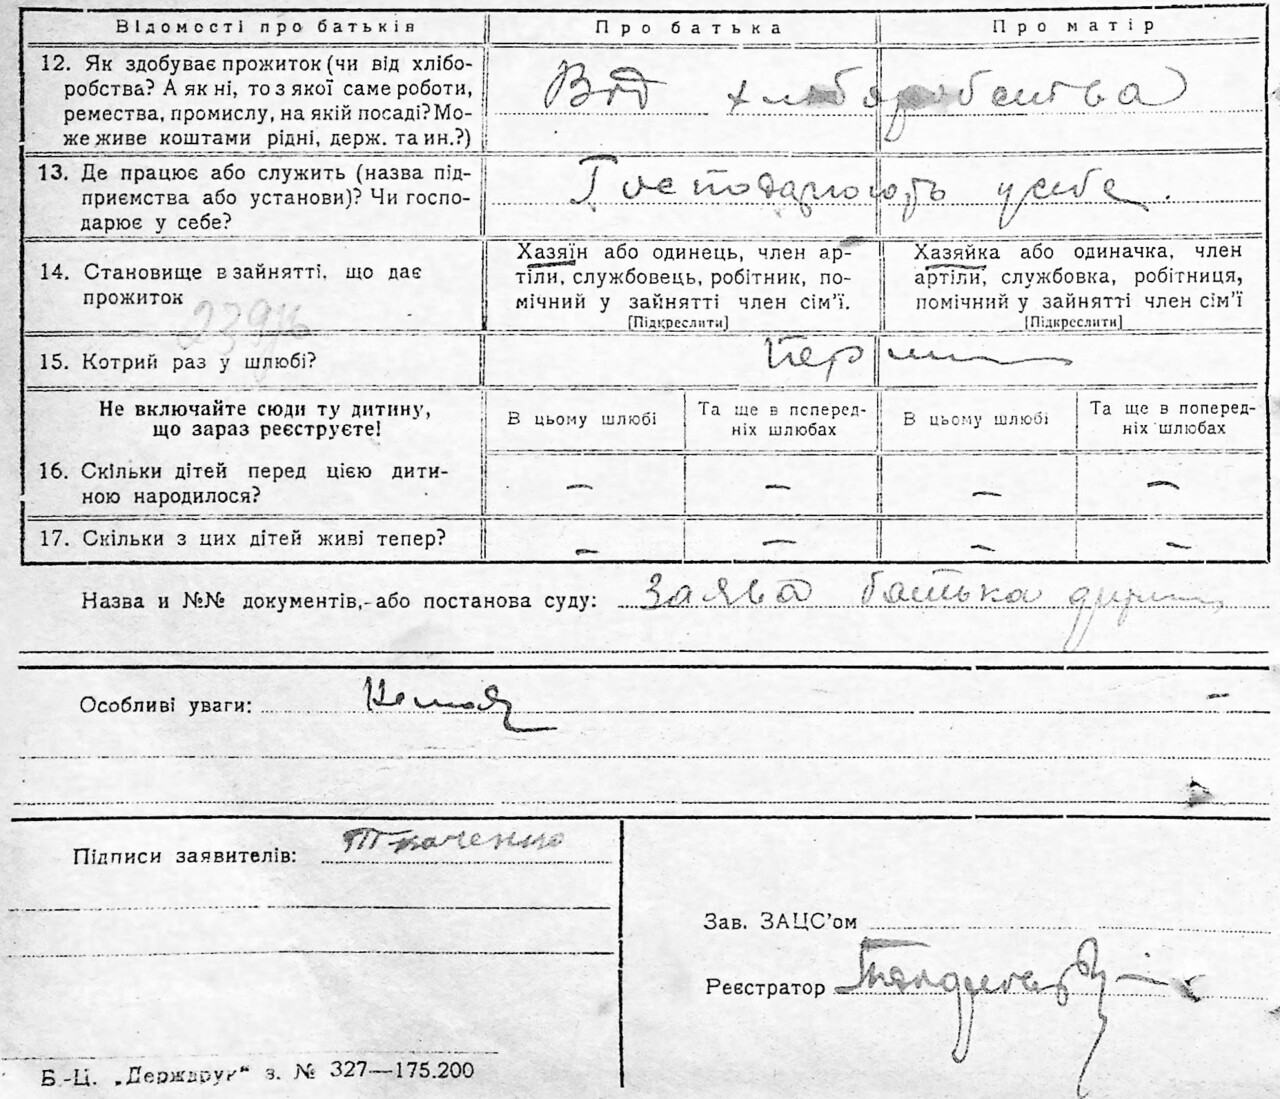 Відомості про батьків Про батька Про матір
12. Як здобуває прожиток (чи від хлібо-
робства? А як ні, то з якої саме роботи,
ремества, промислу, на якій посаді? Мо-
же живе коштами рідні, держ. та ин.?)
Від хлібаробства
13. Де працює або служить (назва під-
приємства або установи)? Чи госпо-
дарює у себе?
Господарюють у себе.
14. Становище в зайнятті, що дає
прожиток
Хазяїн або одинець, член ар-
тіли, службовець, робітник, по-
мічний у зайнятті член сім'ї.
[Підкреслити]
Хазяйка або одиначка, член
артіли, службовка, робітниця,
помічний у зайнятті член сім'ї
[Підкреслити]
15. Котрий раз у шлюбі?
Не включайте сюди ту дитину,
що зараз реєструєте!
В цьому шлюбі Та ще в поперед-
ніх шлюбах В цьому шлюбі Та ще в поперед-
ніх шлюбах
16. Скільки дітей перед цією дити-
ною народилося? — — — —
17. Скільки з цих дітей живі тепер? — — — —
Назва и №№ документів, або постанова суду: Заява батька
Особливі уваги: Немає —
Підписи заявителів: Ткаченко
Зав. ЗАЦС'ом
Реєстратор
Б.-Ц. „Держдрук" з. № 327—175.200